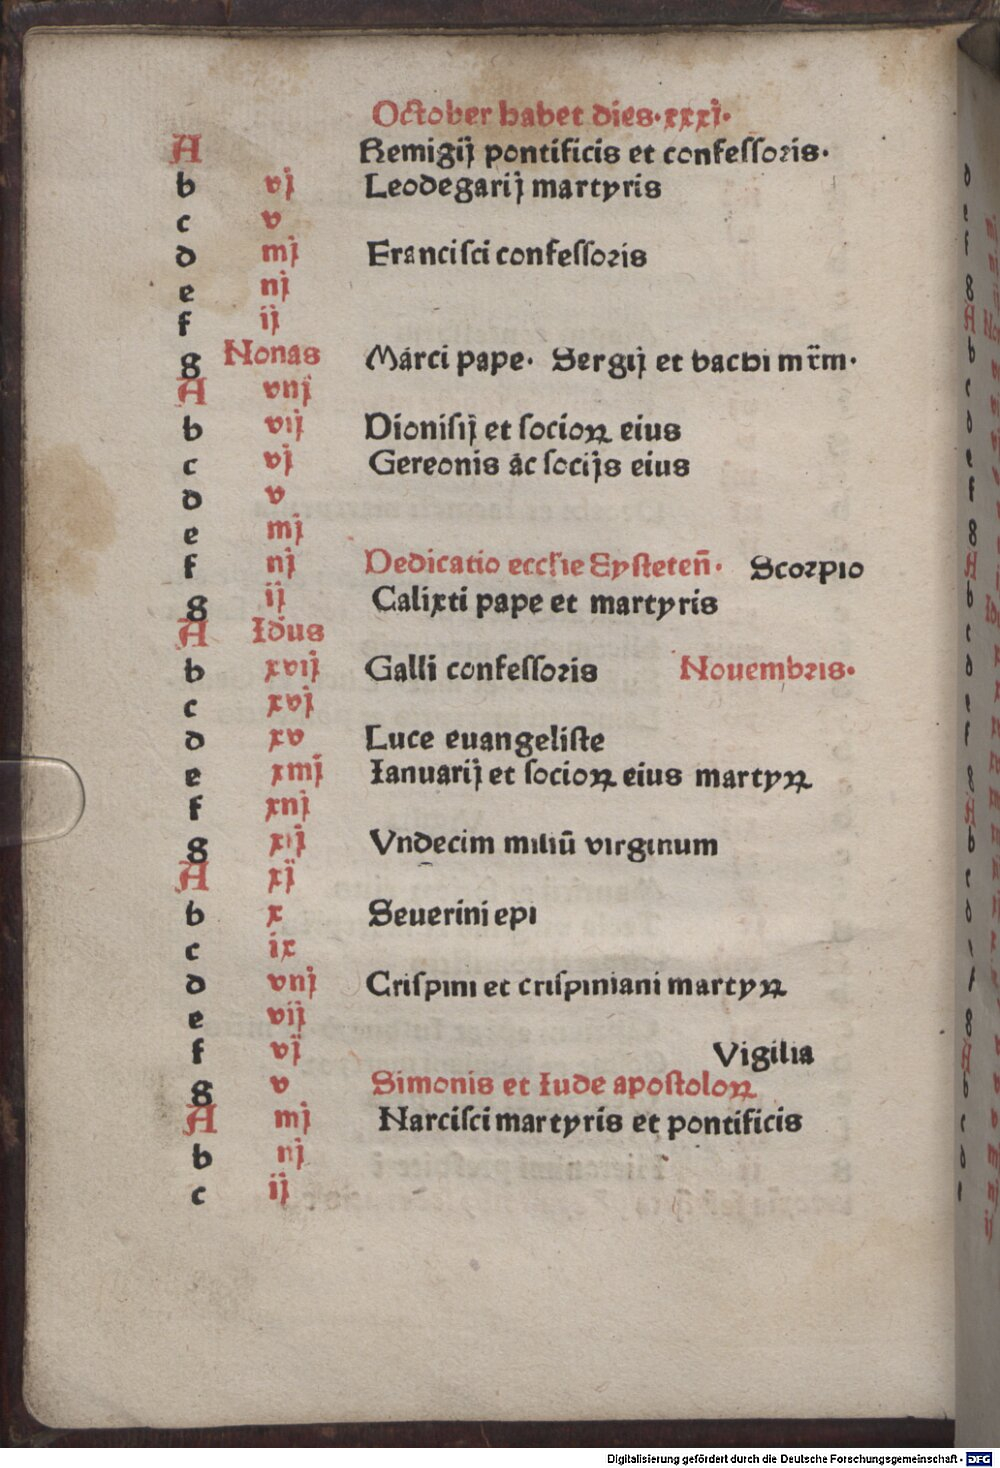 October habet dies·xxxj·
A Remigij pontificis et confessoris·
b vj Leodegarij martyris
c v
d iiij Francisci confessoris
e iij
f ij
g Nonas Marci pape· Sergij et bachi mr̄m·
A viij
b vij Dionisij et socioꝝ eius
c vj Gereonis ac socijs eius
d v
e iiij
f iij Dedicatio eccl̄ie Eysteteñ· Scorpio
g ij Calixti pape et martyris
A Idus
b xvij Galli confessoris Nouembris·
c xvj
d xv Luce euangeliste
e xiiij Ianuarij et socioꝝ eius martyꝝ
f xiij
g xij Vndecim miliū virginum
A xj
b x Seuerini epi
c ix
d viij Crispini et crispiniani martyꝝ
e vij
f vj Vigilia
g v Simonis et Iude apostoloꝝ
A iiij Narcisci martyris et pontificis
b iij
c ij
Digitalisierung gefördert durch die Deutsche Forschungsgemeinschaft - DFG